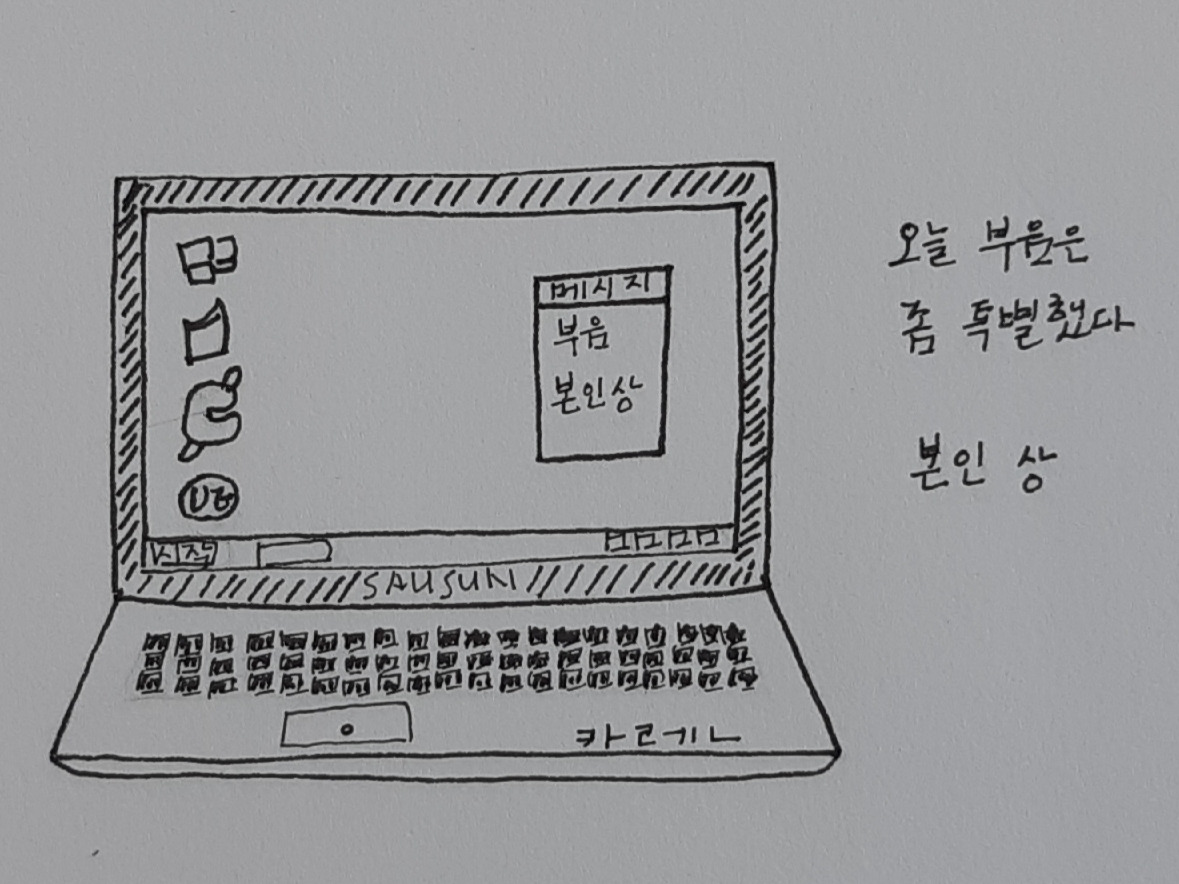 메시지
부음
본인상
시작
SAUSUN
오늘 부음은
좀 특별했다
본인 상